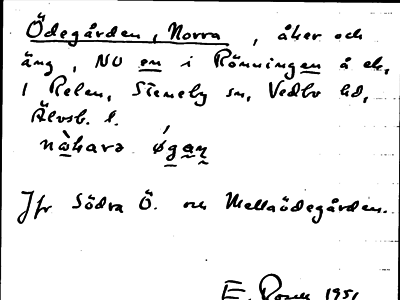 Ödegården, Norra, åker och
äng, NO om i Rönningen å ek,
1 Relen, Steneby sn, Vedbo hd,
Älvsb. l.
nòhara øgan
Jfr Södra Ö. och Mellaödegården.
E. 1951